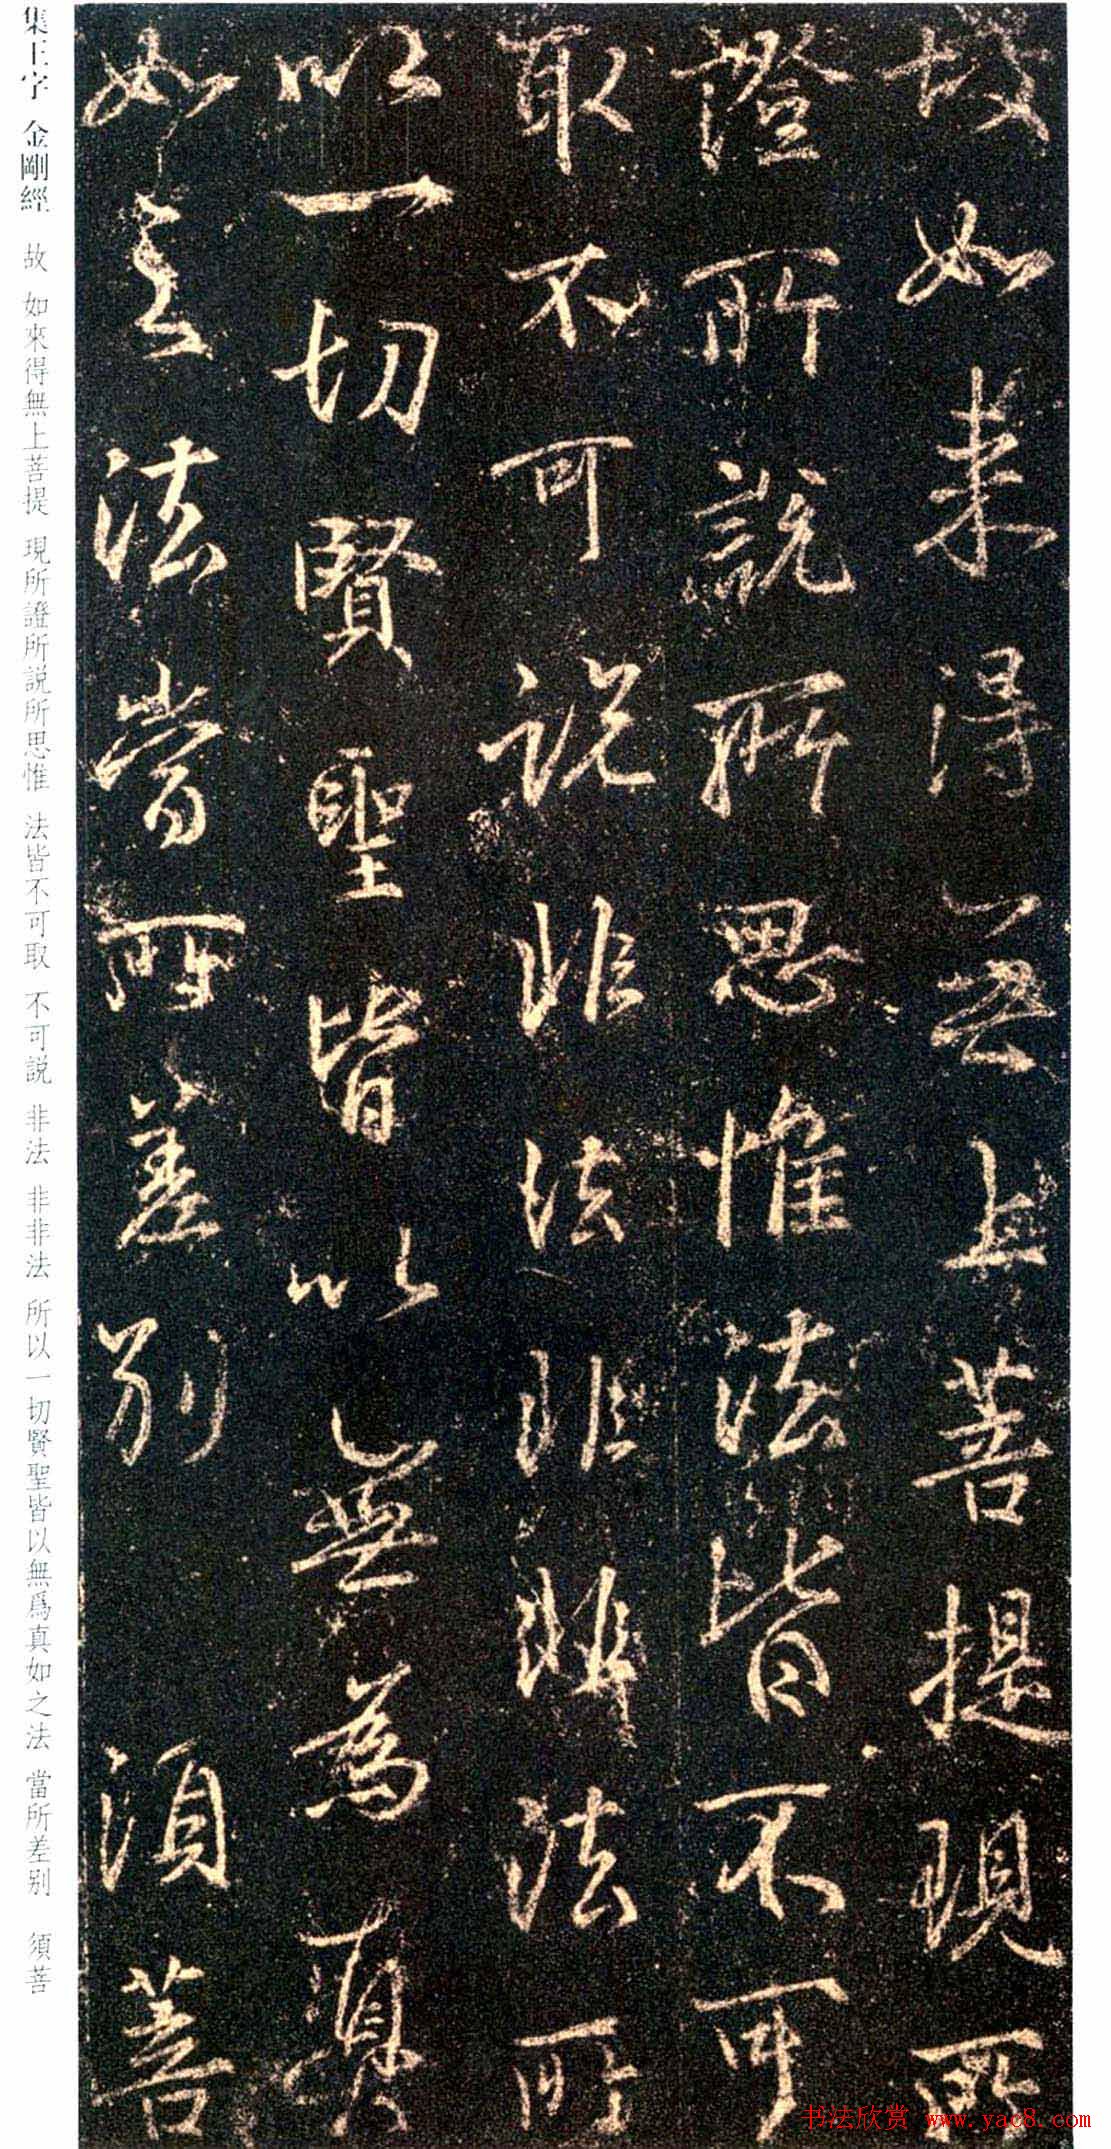 故如来得無上菩提現所
證所説所思惟法皆不可
取不可説非法非非法所
以一切賢聖皆以無為真
如之法當所差别 須菩
集王字 金剛經 故 如來得無上菩提 現所證所説所思惟 法皆不可取 不可説 非法 非非法 所以一切賢聖皆以無爲真如之法 當所差别 須菩
书法欣赏 www.yac8.com